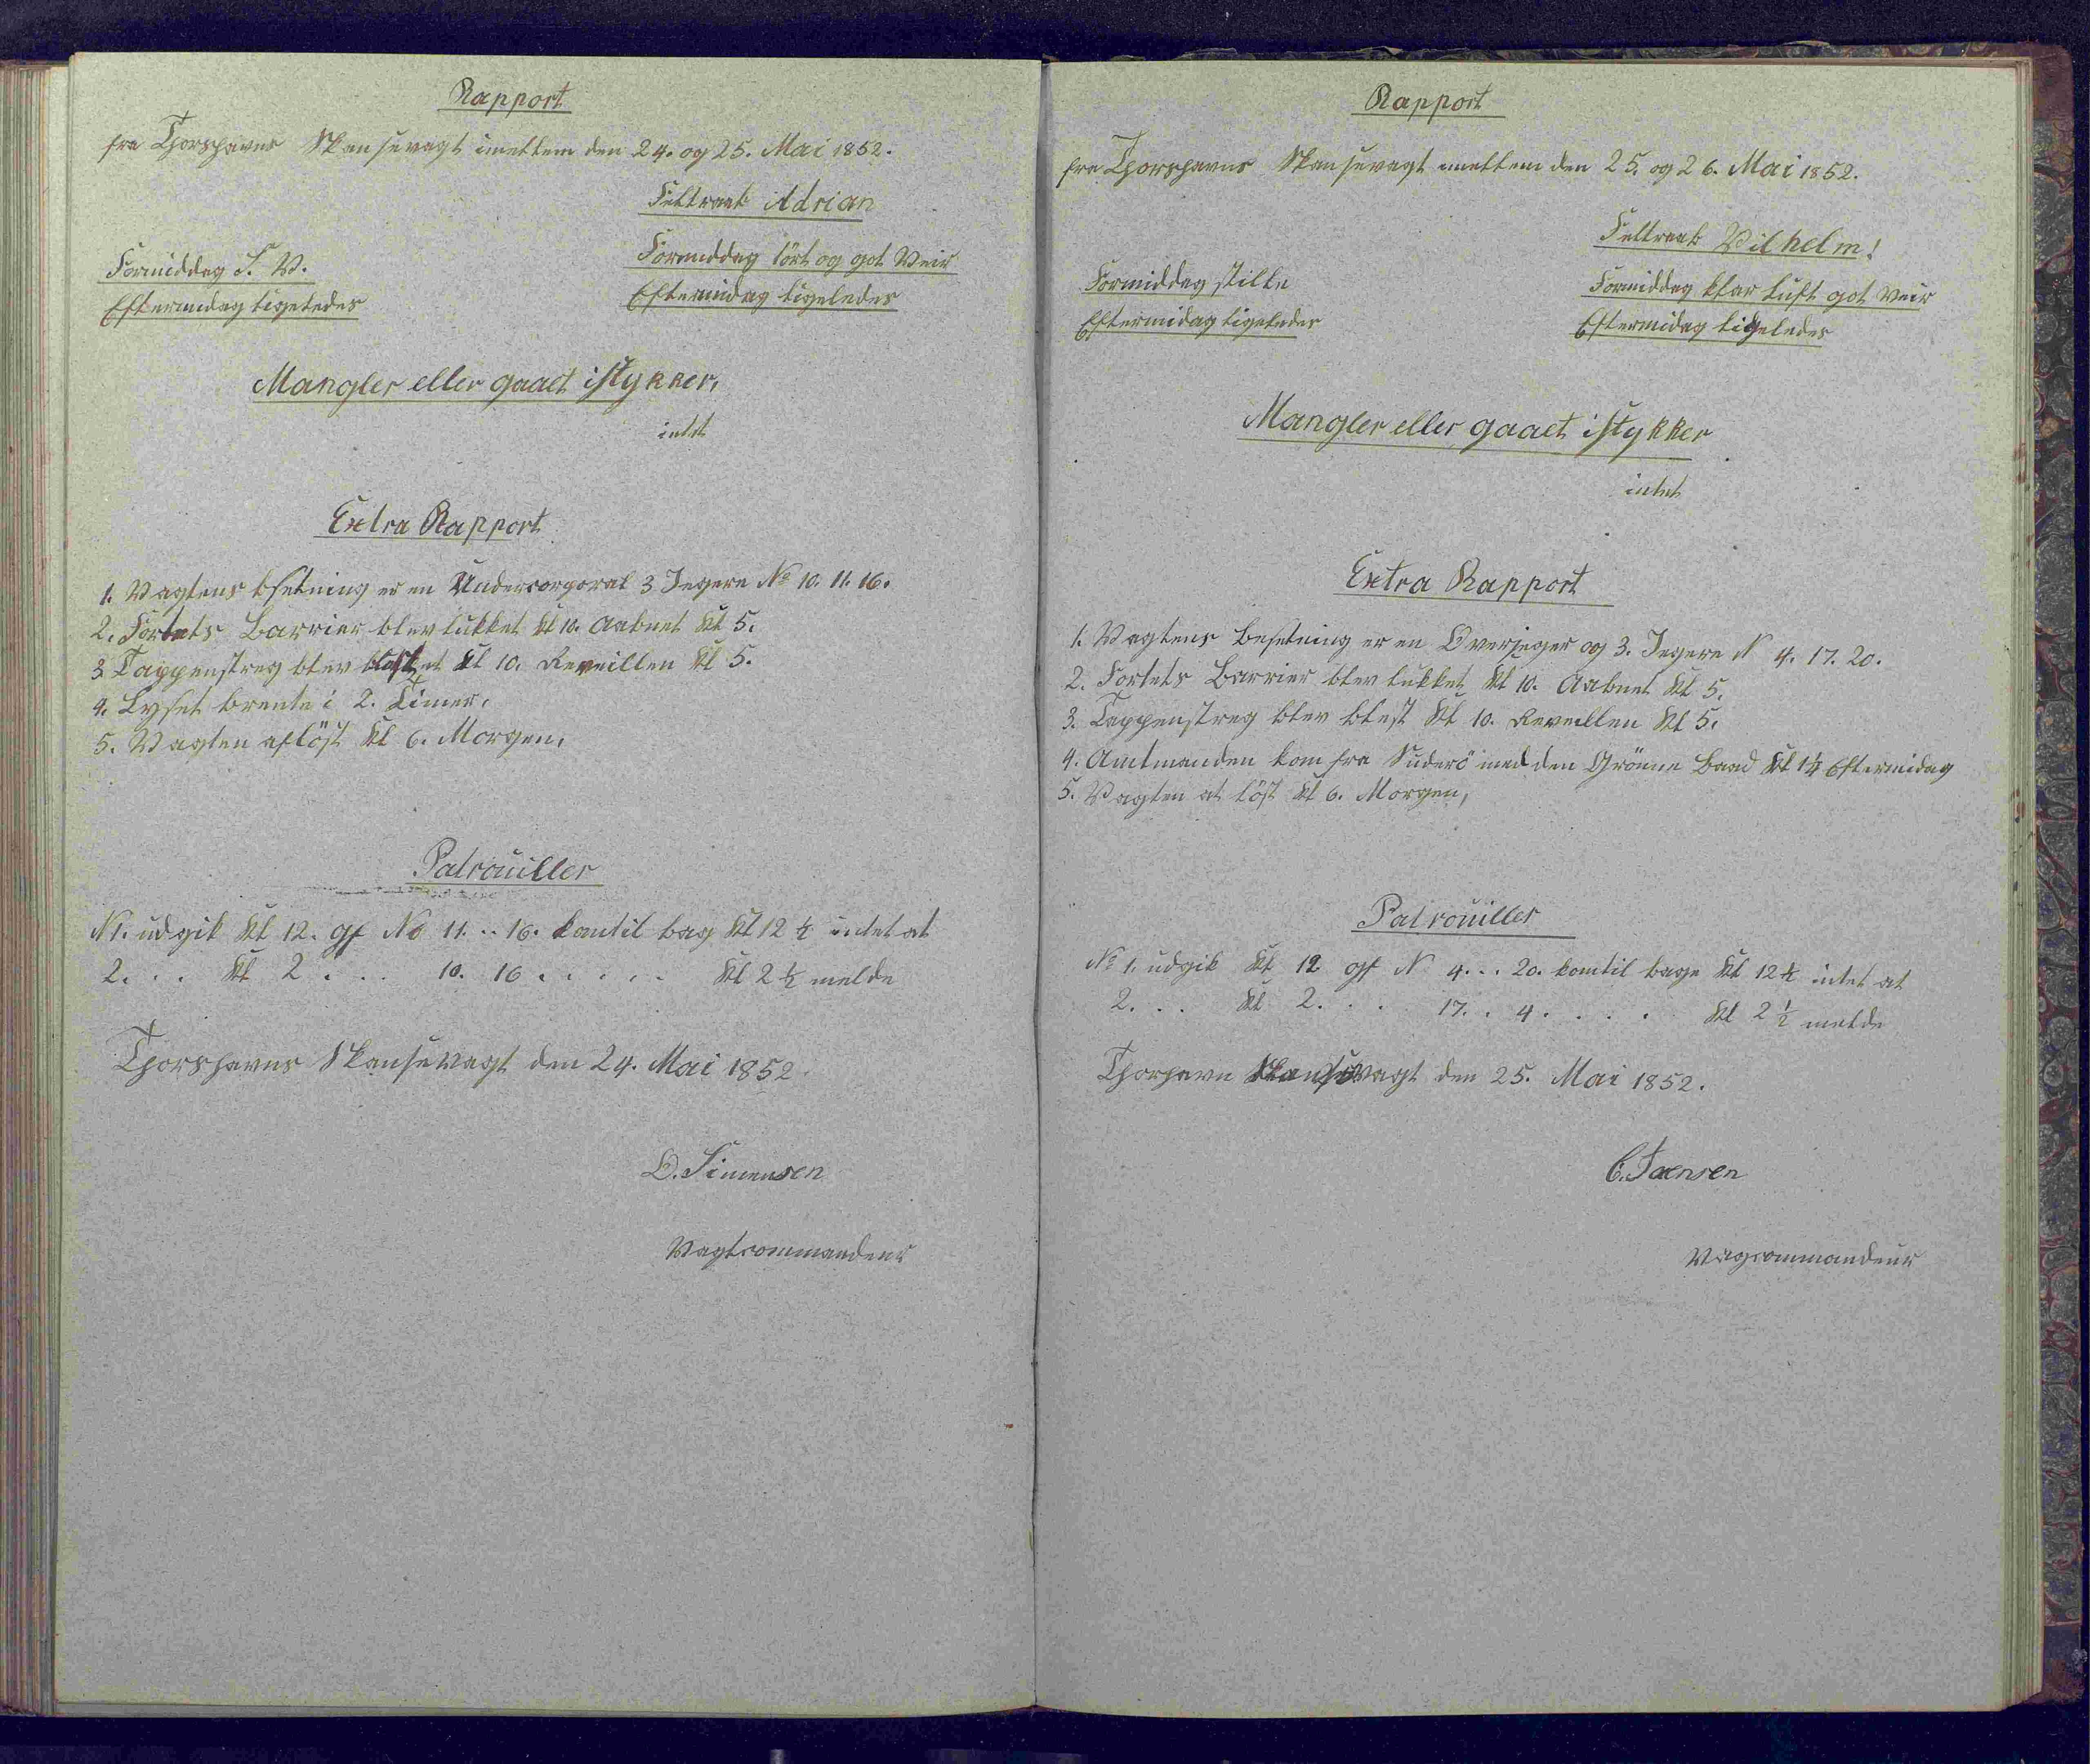 Rapport
fra Thorshavns Skansevagt imellem den 24. og 25. Mai 1852.
Feltraab Adrian
Formiddag S. V.
Eftermidag ligeledes
Formiddag tört og got Veir
Eftermidag ligeledes
Mangler eller gaaet istykker,
intet
Extra Rapport
1. Vagtens besetning er en Undercorporal 3 Jegere No 10. 11. 16.
2. Fortets Barrier blev lukket Kl 10. Aabnet Kl 5.
3 Tappenstreg blev Kl 10. Reveillen Kl 5.
4. Lyset brente i 2. Timer,
5. Vagten aflöst Kl 6. Morgen,
Patrouiller
N 1. udgik Kl 12. af No 11. .. 16. kom til bag Kl 12 ½ intet at
2. . . Kl 2 . . . 10. 16 . . . . . Kl 2 ½ melde
Thorshavns Skansevagt den 24. Mai 1852.
O. Simensen
Vagtcommandeur
Rapport
fra Thorshavns Skansevagt imellem den 25. og 26. Mai 1852.
Feltraab Vilhelm!
Formiddag stille
Eftermidag ligeledes
Formiddag klar luft got Veir
Eftermidag ligeledes
Mangler eller gaaet istykker
intet
Extra Rapport
1. Vagtens besetning er en Overjeger og 3. Jegere N 4. 17. 20.
2. Fortets Barrier blev lukket Kl 10. Aabnet Kl 5.
3. Tappenstreg blev blest Kl 10. Reveillen Kl 5.
4. Amtmanden kom fra Suderö med den Grönne Baad Kl 1¼ Eftermidag
5. Vagten af löst Kl 6. Morgen,
Patrouiller
No 1. udgik Kl 12 af N 4. .. 20. kom til bage Kl 12 ½ intet at
2. . . Kl 2. . . 17. . 4. . . . . Kl 2 ½ melde
Thorhavn Skansevagt den 25. Mai 1852.
C. Joensen
Vagcommandeur